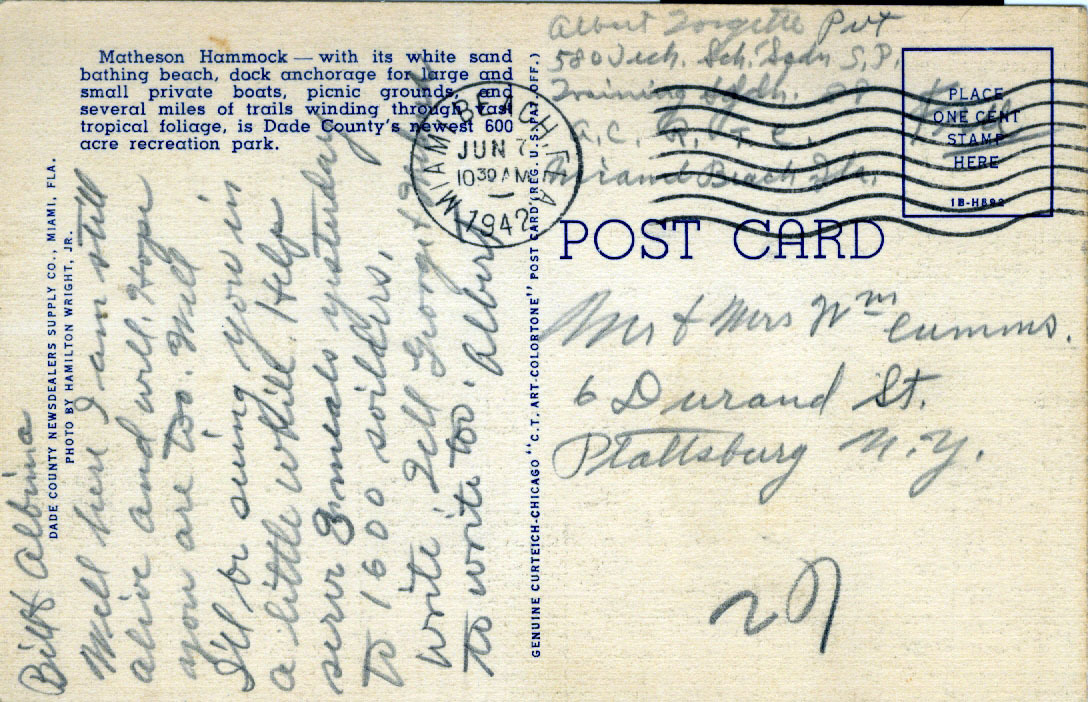 Matheson Hammock — with its white sand
bathing beach, dock anchorage for large and
small private boats, picnic grounds, and
several miles of trails winding through vast
tropical foliage, is Dade County's newest 600
acre recreation park.
DADE COUNTY NEWSDEALERS SUPPLY CO., MIAMI, FLA.
PHOTO BY HAMILTON WRIGHT, JR.
Bill & Albina
Well here I am still
alive and well. Hope
you are too. Will
I'll be seeing you in
a little while. Help
serve 3 meals yesturday
to 1600 soilders.
Write. Tell Georgie
to write too. Albert
GENUINE CURTEICH-CHICAGO "C.T. ART-COLORTONE" POST CARD (REG. U.S. PAT. OFF.)
MIAMI BEACH, FLA.
JUN 7
10 30 AM
1942
Albert Pvt
580 Tech. Sch. Sqdn S.P.
Training
A.C. R. T. C.
Miami Beach Fla.
PLACE
ONE CENT
STAMP
HERE
1B-H892
POST CARD
Mr & Mrs Wm Cumms.
6 Durand St.
Plattsburg N.Y.